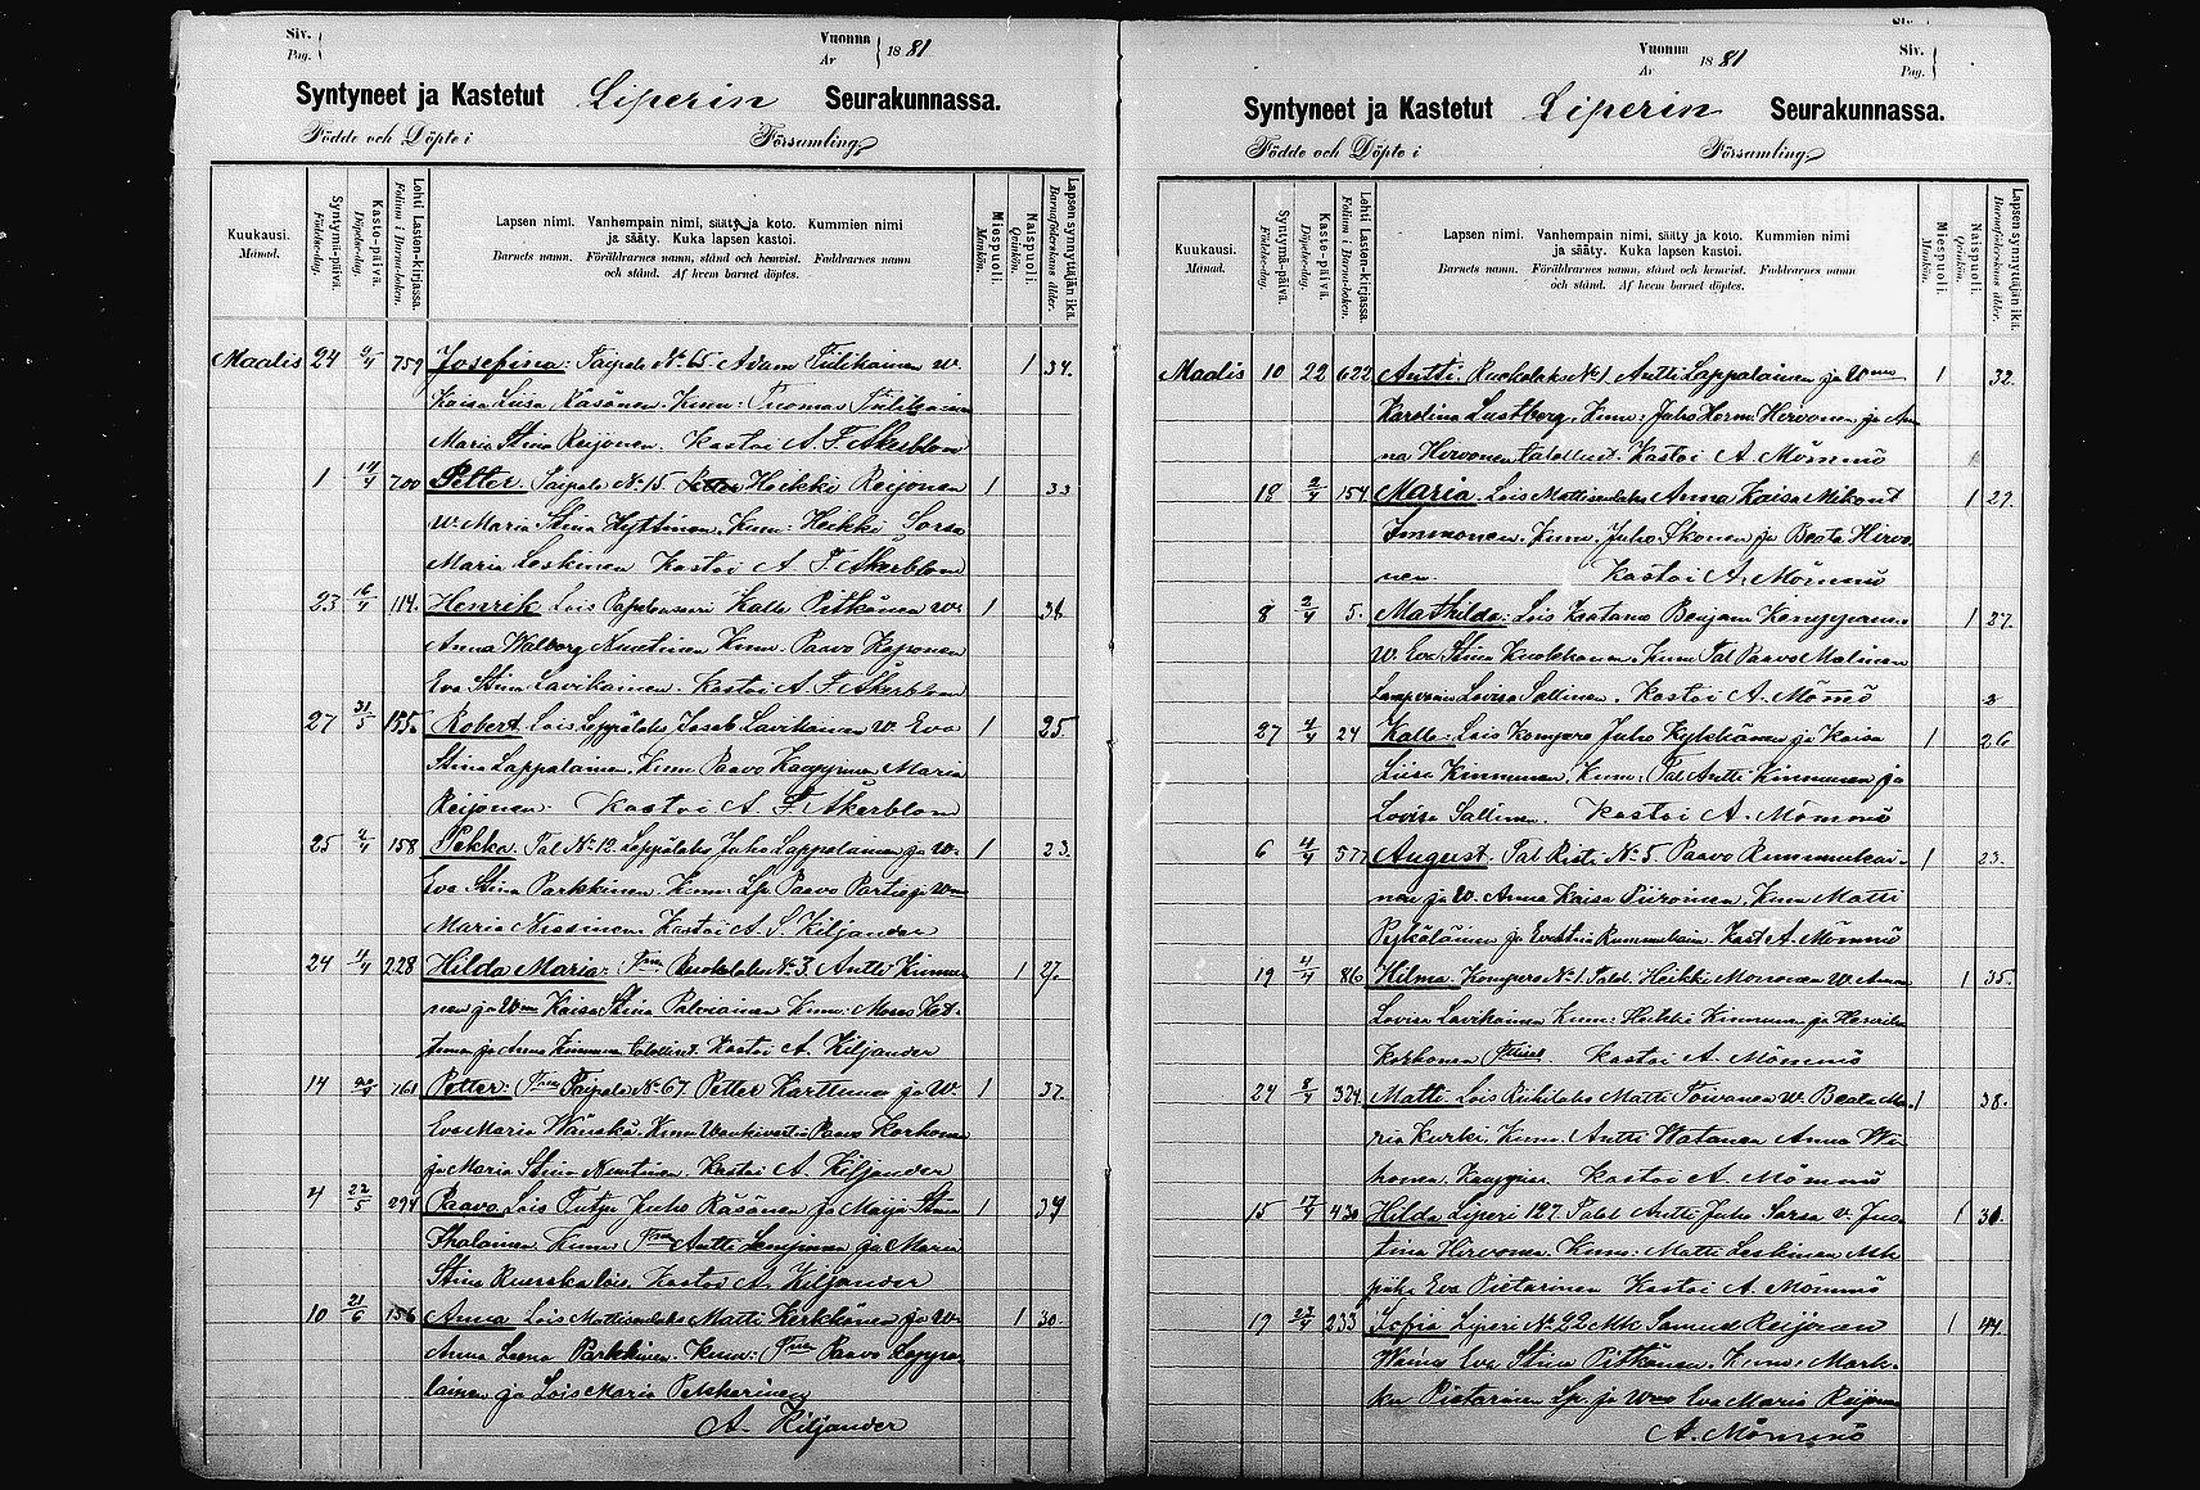 Siv.
Pag.
Vuonna
År
1881
Syntyneet ja Kastetut Liperin Seurakunnassa.
Födde och Döpte i Församling.
Kuukausi.
Månad.
Syntymä-päivä.
Födelse-dag.
Kasto-päivä.
Döpelse-dag.
Lehti Lasten-kirjassa.
Folium i Barna-boken.
Lapsen nimi. Vanhempain nimi, sääty ja koto. Kummien nimi
ja sääty. Kuka lapsen kastoi.
Barnets namn. Föräldrarnes namn, stånd och hemvist. Faddrarnes namn
och stånd. Af hvem barnet döptes.
Miespuoli.
Mankön.
Naispuoli.
Qvinkön.
Lapsen synnyttäjän ikä.
Barnaföderskans ålder.
Maalis 24 9/4 759 Josefina: Taipale No 65. Adam Tiilikainen W. 1 34.
Kaisa Liisa Kasönen. Kum: Tuomas Tiilikainen
Maria Stina Reijonen. Kastoi A. F. Åkerblom
1 14/4 700 Petter. Taipale No 15. Heikki Reijonen 1 33
W. Maria Stina Hyttinen. Kum: Heikki Sorsa
Maria Leskinen Kastoi A. F. Åkerblom
23 16/4 114. Henrik Lois Kalle Pitkänen W. 1 36
Anna Walborg Nuutinen Kum. Paavo Kaponen
Eva Stina Lavikainen. Kastoi A. F. Åkerblom
27 31/5 155. Robert. Lois Leppälaks Josef Lavikainen W. Eva 1 25.
Stina Lappalainen. Kum Paavo Kauppinen Maria
Reijonen. Kastoi A. F. Åkerblom
25 2/4 158 Pekka. Tal No 12. Leppälaks Juho Lappalainen ja W. 1 23.
Eva Stina Parkkinen. Kum: Lp Paavo ja Wmo
Maria Kastoi A. S. Kiljander
24 11/4 228 Hilda Maria: Ruokolaks No 3. Antti Kinnu- 1 27.
nen ja Wmo Kaisa Stina Palviainen Kum: Moses
ja Anna Kinnunen talolliset. Kastoi A. Kiljander
14 761 Petter: Taipale No 67. Petter Karttunen ja W. 1 37.
Eva Maria Wänskä. Kum Paavo Korhonen
ja Maria Stina Nuutinen. Kastoi A. Kiljander
4 22/5 294 Paavo Lois Juho Räsänen ja Maija Stina 1 39
Ihalainen. Kum: Antti ja Maria
Stina Kastoi A. Kiljander
10 21/6 156 Anna Lois Mattisenlaks Matti Kerkkänen ja W. 1 30.
Anna Leena Parkkinen. Kum: Paavo Lappa-
lainen ja Lois Maria Pekkarinen
A. Kiljander
Vuonna
År
1881
Siv.
Pag.
Syntyneet ja Kastetut Liperin Seurakunnassa.
Födde och Döpte i Församling.
Kuukausi.
Månad.
Syntymä-päivä.
Födelse-dag.
Kasto-päivä.
Döpelse-dag.
Lehti Lasten-kirjassa.
Folium i Barna-boken.
Lapsen nimi. Vanhempain nimi, sääty ja koto. Kummien nimi
ja sääty. Kuka lapsen kastoi.
Barnets namn. Föräldrarnes namn, stånd och hemvist. Faddrarnes namn
och stånd. Af hvem barnet döptes.
Miespuoli.
Mankön.
Naispuoli.
Qvinkön.
Lapsen synnyttäjän ikä.
Barnaföderskans ålder.
Maalis 10 22 622 Antti. Ruokolaks No 1 Antti Lappalainen ja Wmo 1 32.
Karolina Lustberg. Kum: Juho Herm. Hirvonen ja An-
na Hirvonen talolliset. Kastoi A. Mömmö
18 2/4 154 Maria. Lois Mattisenlaks Anna Kaisa Mikont 1 29.
Immonen. Kum. Juho Ikonen ja Beata Hirvo-
nen. Kastoi A. Mömmö
8 2/4 5. Mathilda: Lois Kaatamo Benjam Kemppinen 1 27.
W. Eva Stina Kuokkanen. Kum Tal Paavo Malinen
Lovisa Sallinen. Kastoi A. Mömmö
27 4/4 24 Kalle: Lois Kompero Juho Kykkänen ja Kaisa 1 26
Liisa Kinnunen. Kum: Tal Antti Kinnunen ja
Lovisa Sallinen. Kastoi A. Mömmö
6 4/4 577 August. Tal Risti No 5. Paavo Rummukai- 1 23.
nen ja W. Anna Kaisa Piironen. Kum Matti
Pykäläinen ja Eva Stina Rummukain. Kast A. Mömmö
19 4/4 86 Hilma. Kompero No 1. Talol. Heikki Moronen W. Anna 1 35.
Lovisa Lavikainen Kum: Heikki Kinnunen ja Henrika
Korhonen Kastoi A. Mömmö
24 8/4 324. Matti. Lois Riihilaks Matti Toivanen W. Beata Ma- 1 38.
ria Kurki. Kum. Antti Watanen Anna Wi-
honen. Kastoi A. Mömmö
15 17/4 430 Hilda Liperi 127. Talol Antti Juho Sorsa v. Jus-
tina Hirvonen. Kum: Matti Leskinen Mk 1 30.
Eva Pietarinen Kastoi A. Mömmö
19 233 Sofia Liperi No 22 Mk Samuel Reijonen 1 44.
Waimo Eva Stina Pitkänen. Kum: Mark-
ku Pietarinen Lp. ja Wmo Eva Maria Reijonen
A. Mömmö